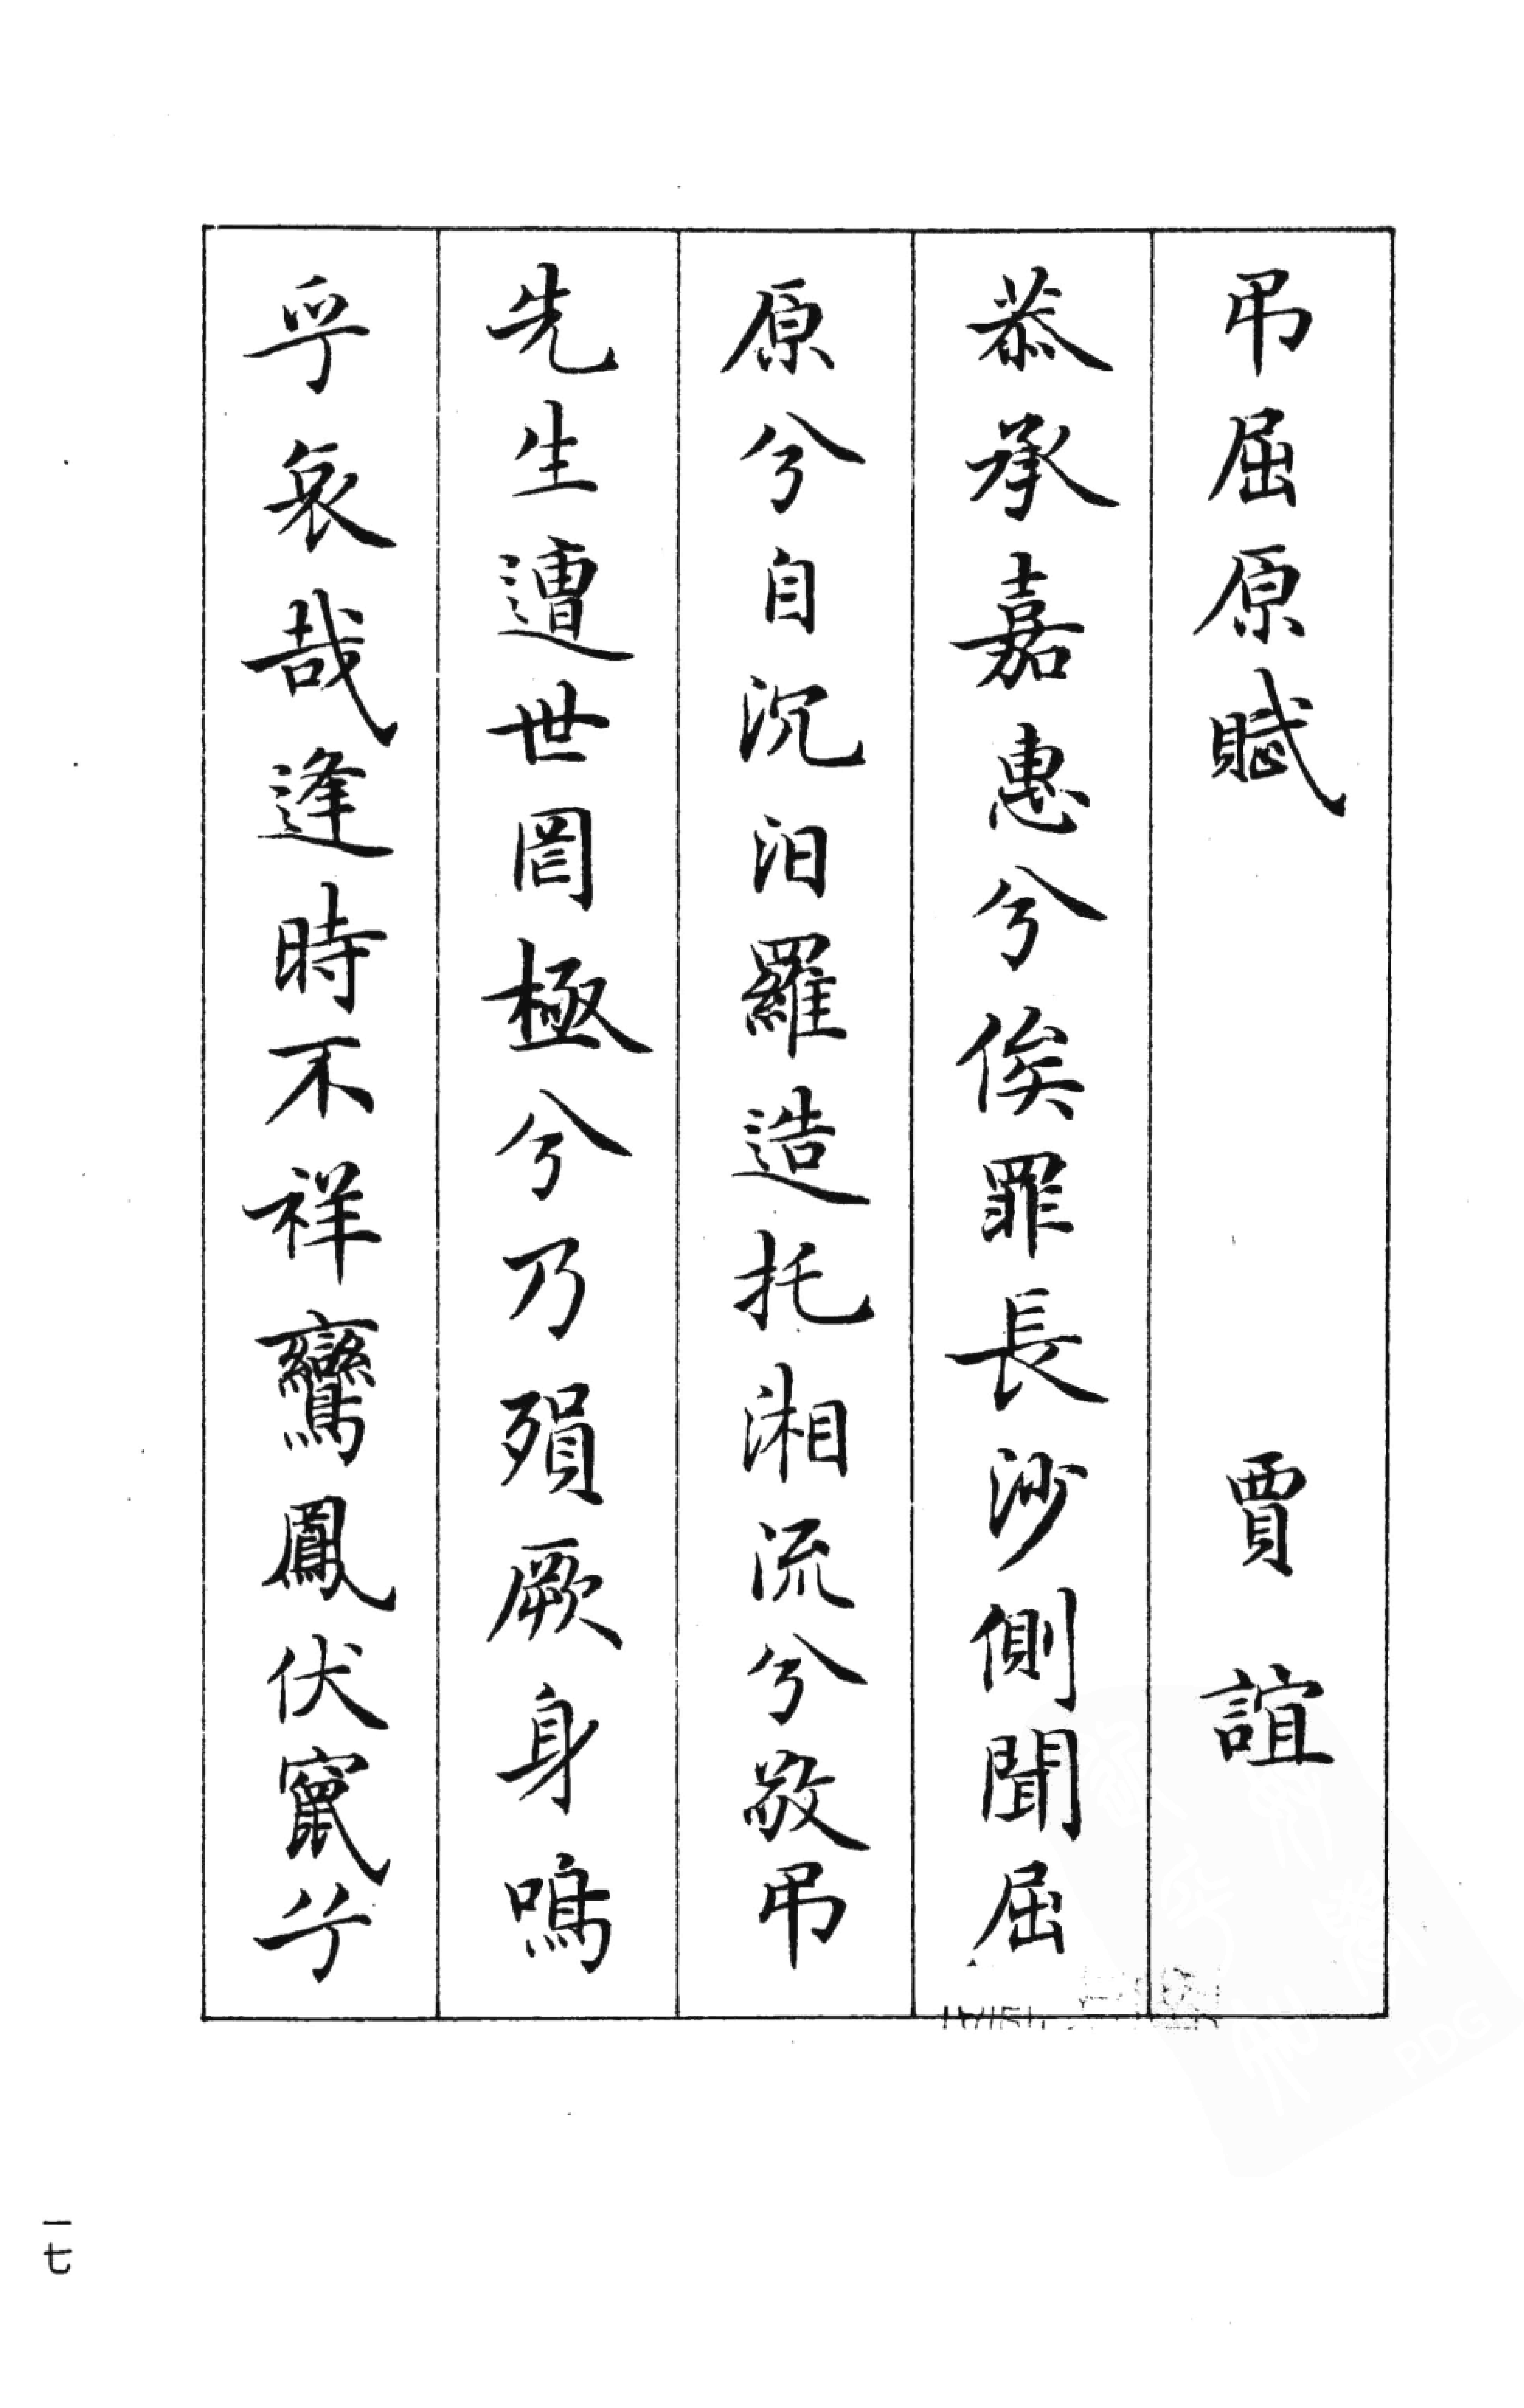 弔屈原賦 賈誼
恭承嘉惠兮俟罪長沙側聞屈
原兮自沉汨羅造托湘流兮敬弔
先生遭世罔極兮乃殞厥身鳴
乎哀哉逢時不祥鸞鳳伏竄兮
一七
PDG